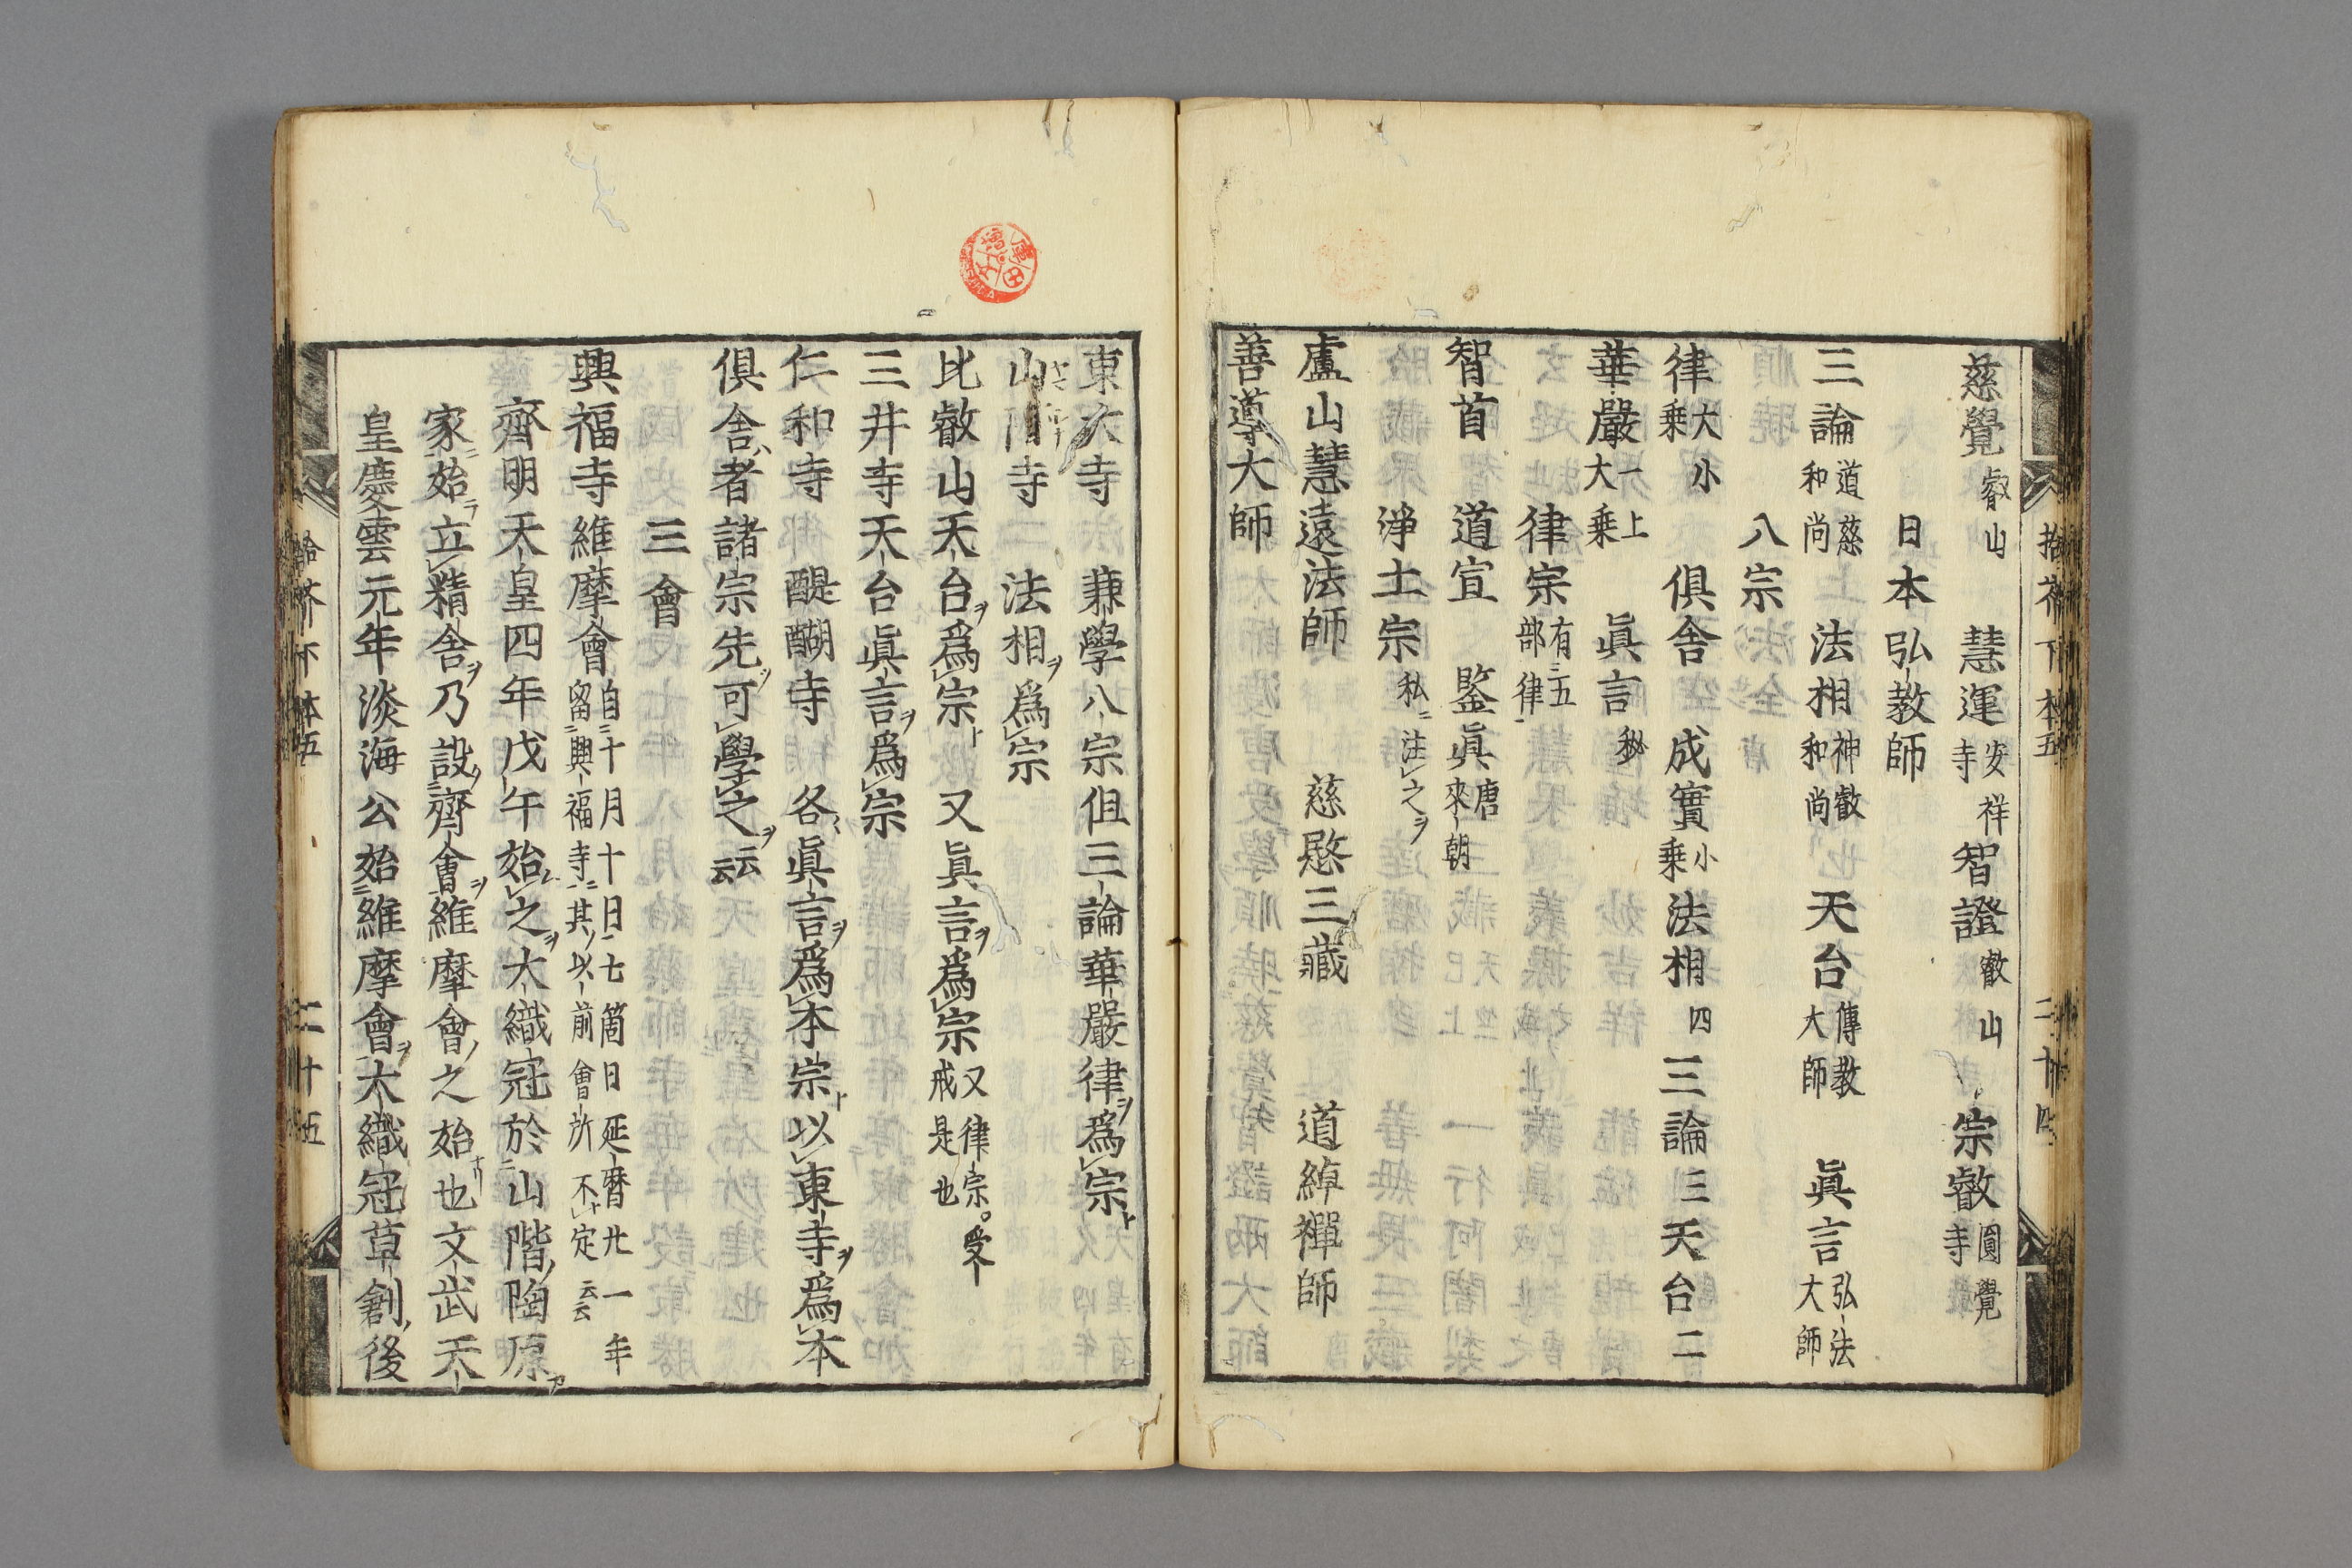 慈覺叡山 慧運安祥寺 智證叡山 宗叡圓覺寺
日本弘教師
三論道慈和尚 法相神叡和尚 天台傳教大師 眞言弘法大師
八宗
律大小乗 俱舎 成實小乗 法相四 三論三 天台二
華嚴一上大乗 眞言秘
律宗有二五部律一
智首 道宣 鑒眞唐來朝
淨土宗私ニ注之ヲ
盧山慧遠法師 慈愍三藏 道綽禪師
善導大師
拾芥下本五 二十四
東大寺 兼學八宗但三論華嚴律ヲ爲宗ト
山階寺 法相ヲ爲宗
比叡山天台ヲ爲宗ト 又眞言ヲ爲宗又律宗受戒是也
三井寺天台眞言ヲ爲宗
仁和寺 醍醐寺 各眞言ヲ爲本宗ト以東寺ヲ爲本
俱舎ハ者諸宗先ツ可學之ヲ云云
三會
興福寺維摩會自十月十日七箇日延暦廿一年留興福寺其以前會所不定云云
齊明天皇四年戊午始之ヲ大織冠於山階ノ陶原ノ
家ニ始テ立精舎ヲ乃設齊會ヲ維摩會ノ之始ナリ也文武天
皇慶雲元年淡海公始ニ維摩會ヲ大織冠草創ノ後
拾芥下本五 二十五